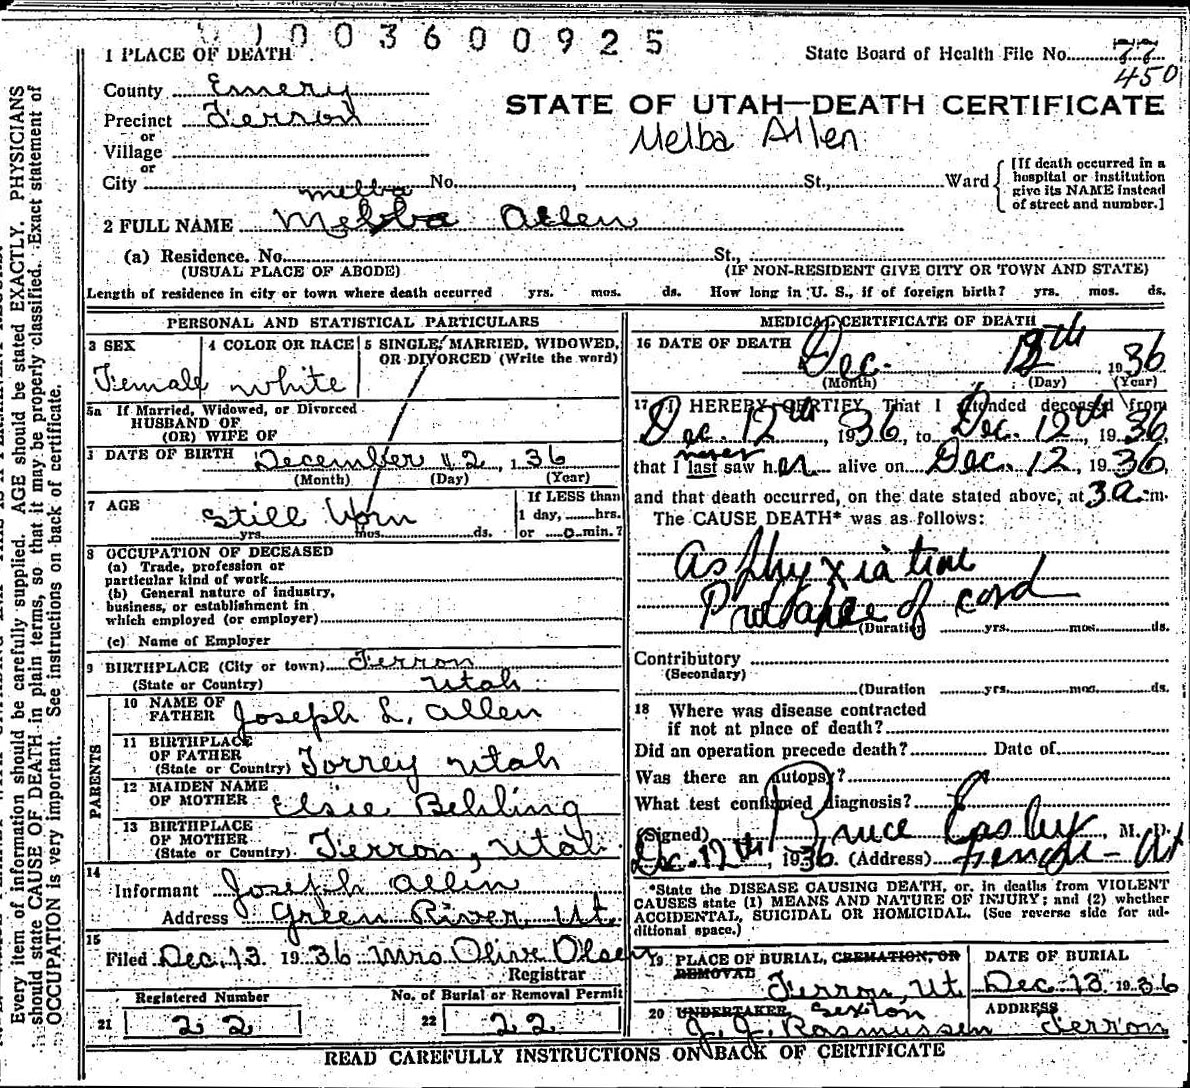 1003600925
1 PLACE OF DEATH
State Board of Health File No. 77
450
County Emery
STATE OF UTAH—DEATH CERTIFICATE
Precinct Ferron
or
Melba Allen
Village
or
City No. St., Ward
[If death occurred in a
hospital or institution
give its NAME instead
of street and number.]
melba
2 FULL NAME Melba Allen
(a) Residence. No. St.,
(USUAL PLACE OF ABODE) (IF NON-RESIDENT GIVE CITY OR TOWN AND STATE)
Length of residence in city or town where death occurred yrs. mos. ds. How long in U. S., if of foreign birth? yrs. mos. ds.
PERSONAL AND STATISTICAL PARTICULARS
3 SEX 4 COLOR OR RACE 5 SINGLE, MARRIED, WIDOWED,
OR DIVORCED (Write the word)
Female white
5a If Married, Widowed, or Divorced
HUSBAND OF
(OR) WIFE OF
DATE OF BIRTH December 12, 1 36
(Month) (Day) (Year)
7 AGE If LESS than
Still Born 1 day, hrs.
yrs. mos. ds. or 0 min.?
8 OCCUPATION OF DECEASED
(a) Trade, profession or
particular kind of work
(b) General nature of industry,
business, or establishment in
which employed (or employer)
(c) Name of Employer
9 BIRTHPLACE (City or town) Ferron
(State or Country) Utah
PARENTS
10 NAME OF
FATHER Joseph L. Allen
11 BIRTHPLACE
OF FATHER
(State or Country) Torrey Utah
12 MAIDEN NAME
OF MOTHER Elsie Behling
13 BIRTHPLACE
OF MOTHER
(State or Country) Ferron, Utah
14
Informant Joseph Allen
Address Green River, Ut.
15
Filed Dec. 13 1936 Mrs Olive Olsen
Registrar
Registered Number No. of Burial or Removal Permit
21 22 22 22
MEDICAL CERTIFICATE OF DEATH
16 DATE OF DEATH
Dec. 12th 1936
(Month) (Day) (Year)
17 I HEREBY CERTIFY, That I attended deceased from
Dec. 12th, 1936, to Dec. 12th, 1936,
never
that I last saw her alive on Dec. 12, 1936,
and that death occurred, on the date stated above, at 3 a. m.
The CAUSE DEATH* was as follows:
Asphyxiation
of cord
(Duration yrs. mos. ds.
Contributory
(Secondary)
(Duration yrs. mos. ds.
18 Where was disease contracted
if not at place of death?
Did an operation precede death? Date of
Was there an autopsy?
What test confirmed diagnosis?
(Signed) Bruce Easley, M. D.
Dec. 12th, 1936 (Address)
*State the DISEASE CAUSING DEATH, or, in deaths from VIOLENT
CAUSES state (1) MEANS AND NATURE OF INJURY; and (2) whether
ACCIDENTAL, SUICIDAL OR HOMICIDAL. (See reverse side for ad-
ditional space.)
19 PLACE OF BURIAL, CREMATION, OR
REMOVAL DATE OF BURIAL
Ferron, Ut. Dec. 13 1936
20 UNDERTAKER, Sexton ADDRESS
J. J. Rasmussen Ferron
READ CAREFULLY INSTRUCTIONS ON BACK OF CERTIFICATE
Every item of information should be carefully supplied. AGE should be stated EXACTLY. PHYSICIANS
should state CAUSE OF DEATH in plain terms, so that it may be properly classified. Exact statement of
OCCUPATION is very important. See instructions on back of certificate.